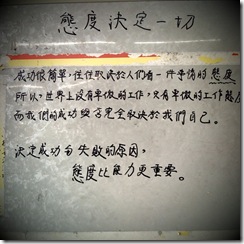 態度決定一切
成功很簡單,往往取決於人們看一件事情的態度
所以,世界上沒有卑微的工作,只有卑微的工作態度
而我們的成功與否完全取決於我們自己。
決定成功与失敗的原因,
態度比能力更重要。